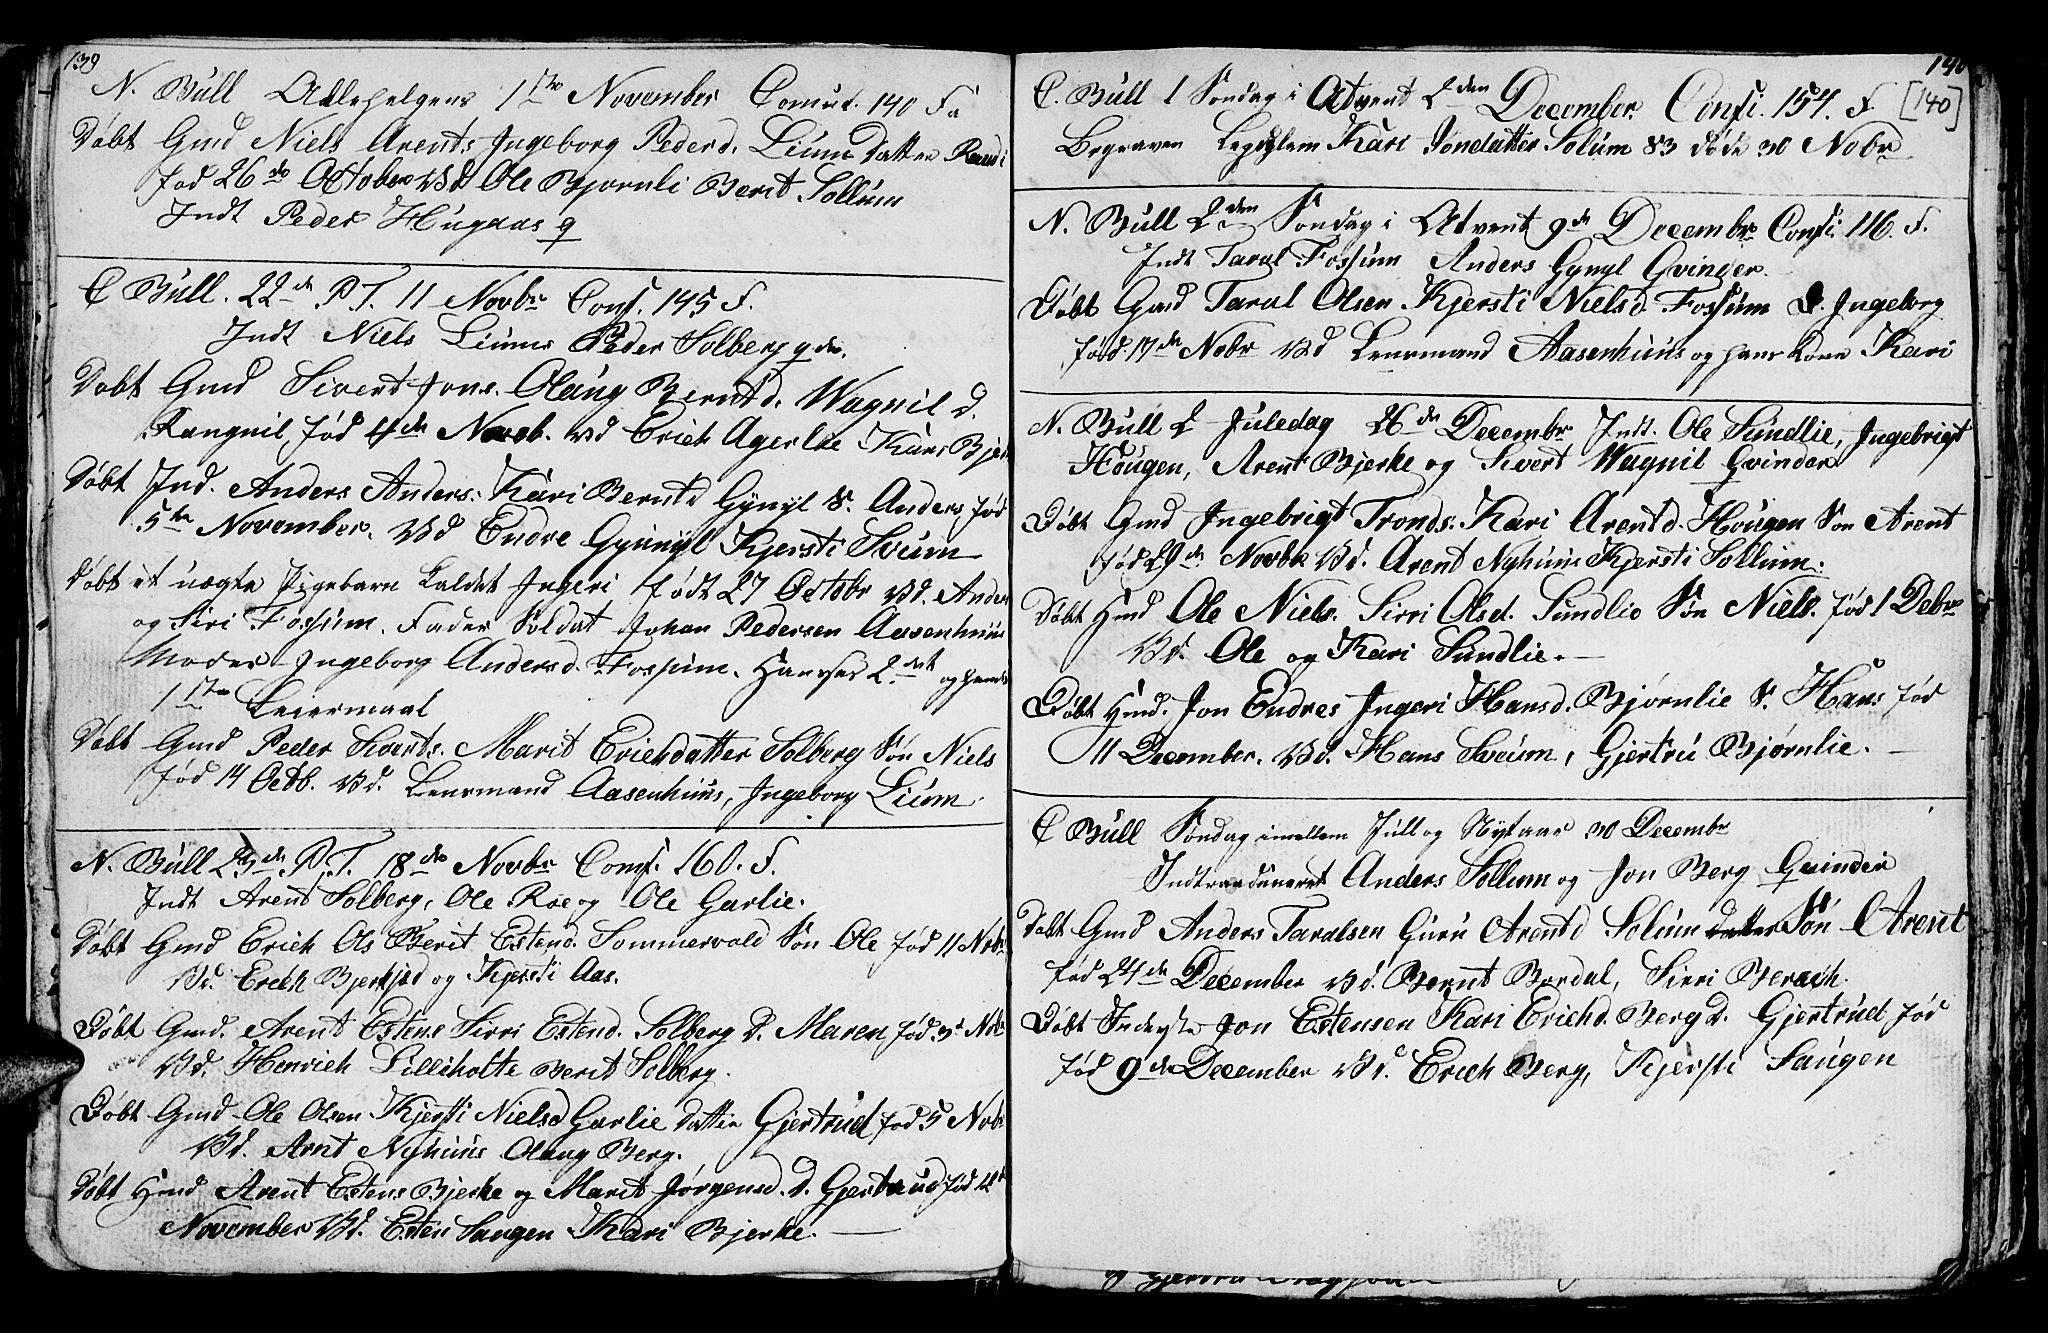 139
N. Bull Allehelgens 1ste November Comut. 140 Fa
Døbt Gmd Niels Arents. Ingeborg Pederd. Lium Datter Randi
fød 26de October Vd Ole Bjørnli Berit Sollum
Indt Peder Hugaas q
C Bull. 22de P.T. 11 Novbr Conf. 145 F.
Indt Niels Liums Peder Solberg qdr.
Døbt Gmd Sivert Jons. Olaug Berntd. Wagnil D.
Rangnil, fød 4de Novb. Vd Erich Agerlie Kari Bjer
Døbt Ind. Anders Anders. Kari Berntd Gynyl S. Anders fød
5te November. Vd Endre Gynnyl Kjersti Svum
Døbt et uægte Pigebarn kaldet Ingeri født 27 Octobr Vd. Anders
og Siri Fossum. Fader Soldat Johan Pedersen Aasenhuus
Moder Ingeborg Andersd. Fossum. Hanses 2det og hendes
1ste Leiermaal
Døbt Gmd Peder Siverts. Marit Erichdatter Solberg Søn Niels
fød 14 Octb. Vd. Lensmand Aasenhuus, Ingeborg Lium.
N. Bull 23de P.T. 18de Novbr Conf. 160. F.
Indt Arent Solberg, Ole Roe og Ole Garlie.
Døbt Gmd Erich Ols Berit Estend. Sommervold Søn Ole fød 11 Nobr.
Vd. Erich Bjerkjed og Kjersti Aas.
Døbt Gmd. Arent Estens Sirri Estend. Solberg D. Maren, fød 3d Nobr
Vd. Henrich Lilleholte Berit Solberg.
Døbt Gmd Ole Olsen Kjersti Nielsd Garlie Datter Gjertrud fød 5 Nobr
Vd. Arnt Nyhuus Olaug Berg.
Døbt Hmd Arent Estens Bjerke og Marit Jørgensd. D. Gjertrud fød 12te
November Vd. Esten Saugen Kari Bjerke.
140
[140]
C. Bull 1 Søndag i Atvent 2den December Conf. 154. F.
Begraven Legdslem Kari Jondatter Solum 83 døde 30 Nobr
N. Bull 2den Søndag i Atvent 9de Decembr Conf. 116. F.
Indt Taral Fossum Anders Gynyl Qvinder.
Døbt Gmd Taral Olsen Kjersti Nielsd. Fossum D. Ingeborg
fød. 17de Nobr Vd Lensmand Aasenhuus og hans Kone Kari
N. Bull 2 Juledag 26de Decembr Indt. Ole Sundlie, Ingebrigt
Hougen, Arent Bjerke og Sivert Wagnil Qvinder
Døbt Gmd Ingebrigt Tronds. Kari Arentd. Hougen Søn Arent
fød 29de Novbr Vd. Arent Nyhuus Kjersti Sollum.
Døbt Hmd Ole Niels. Sirri Olsd. Sundlie Søn Niels. fød 1 Debr
Vd. Ole og Kari Sundlie.
Døbt Hmd. Jon Endres Ingeri Hansd. Bjørnlie S. Hans fød
11 December. Vd. Hans Sveum, Gjertru Bjørnlie.
C Bull Søndag imellem Jull og Nytaar 30 Decembr
Indtroduneret Anders Sollum og Jon Berg Qvinder
Døbt Gmd Anders Taralsen Guru Arentd Solum datter Søn Arent
fød 24de December Vd. Bernt Bordal, Sirri Berach
Døbt Inderste Jon Estensen Kari Erichd. Berg D. Gjertrud fød
fød 9de December Vd. Erich Berg, Kjersti Saugen